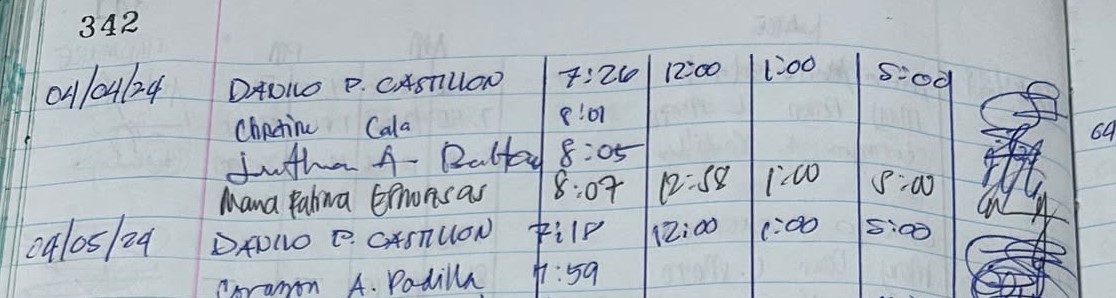 342
04/04/24 DANILO P. CASTILLON 7:26 12:00 1:00 5:00
Christine Cala 8:01
A. 8:05
Maria Fatima 8:07 12:58 1:00 5:00
04/05/24 DANILO P. CASTILLON 7:18 12:00 1:00 5:00
Corazon A. Padilla 7:59